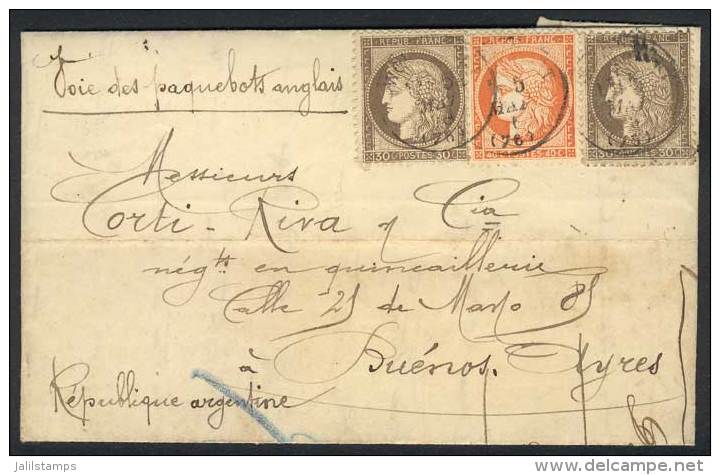 Voie des paquebots anglais
REPUB. FRANC.
REPUB. FRANC.
REPUB. FRANC.
30 C POSTES 30 C
40 C POSTES 40 C
30 C POSTES 30 C
5
(76)
Messieurs
Corti-Riva y Cia
négts en quincaillerie
Calle 25 de Mayo 85
à
Buénos. Ayres
République argentine
jalilstamps
www.delcampe.net